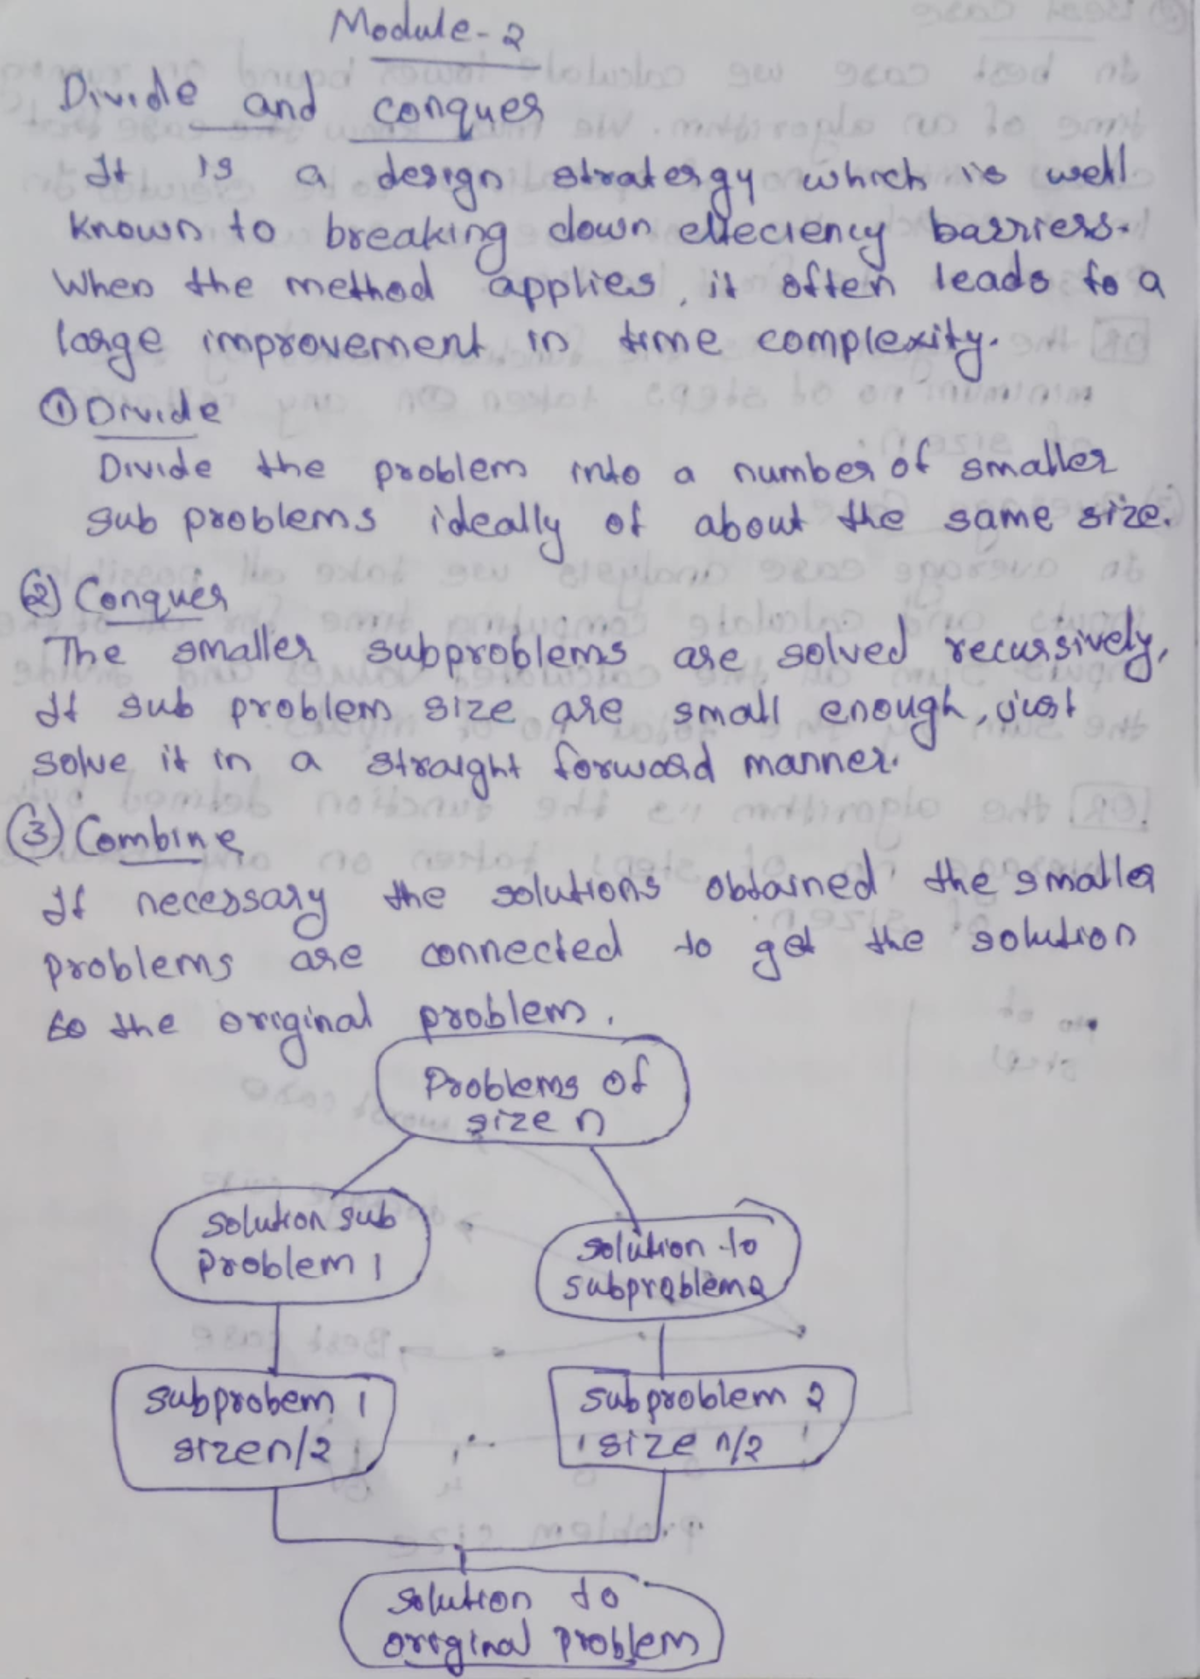 Module-2
Divide and conquer
It is a design stratergy which is well
known to breaking down effeciency barriers.
When the method applies, it often leads to a
large improvement in time complexity.
① Divide
Divide the problem into a number of smaller
sub problems ideally of about the same size.
② Conquer
The smaller subproblems are solved recursively,
If sub problem size are small enough, just
solve it in a straight forward manner.
③ Combine
If necessary the solutions obtained the smaller
problems are connected to get the solution
to the original problem.
Problems of
size n
Solution sub
Problem 1
Solution to
subproblem2
Subprobem 1
size n/2
Subproblem 2
size n/2
Solution to
original problem